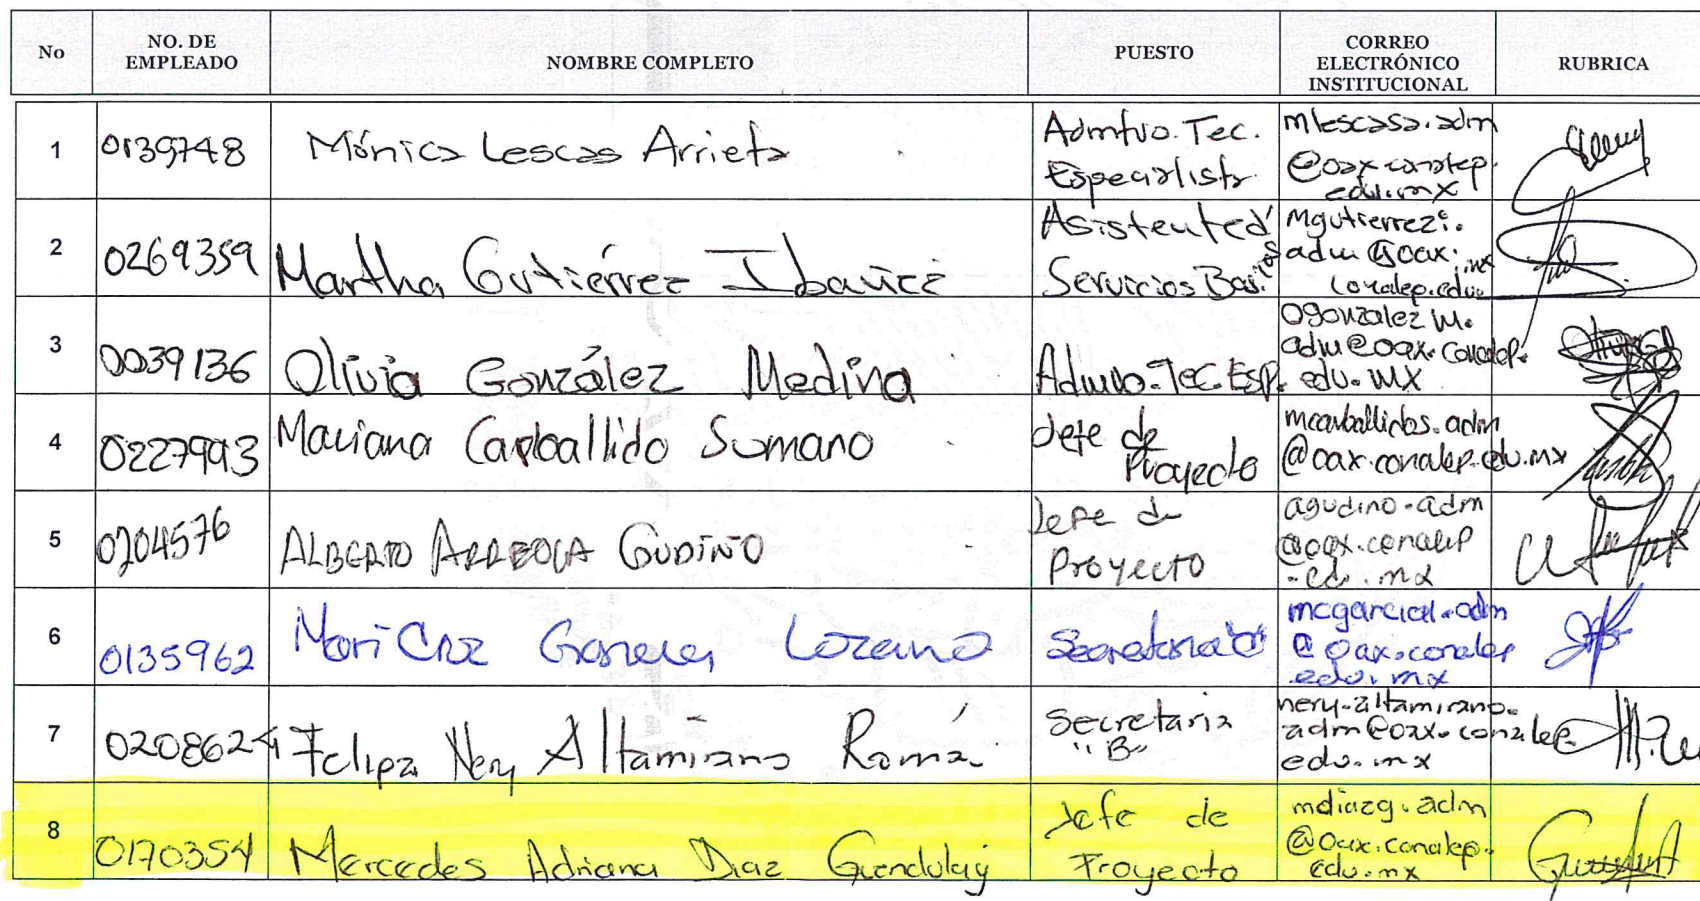 No
NO. DE
EMPLEADO
NOMBRE COMPLETO
PUESTO
CORREO
ELECTRÓNICO
INSTITUCIONAL
RUBRICA
1
0139748
Mónica Lescas Arrieta
Admtvo. Tec.
Especialista
mlescasa.adm
@oax.conalep.
edu.mx
2
0269359
Martha Gutiérrez Ibañez
Asistente d
Servicios Basicos
mgutierrezi.
adm@oax.
conalep.edu.mx
3
0039136
Olivia González Medina
Admvo. Tec. Esp.
ogonzalezm.
adm@oax.conalep.
edu.mx
4
0227993
Mariana Carballido Sumano
Jefe de
Proyecto
mcarballidos.adm
@oax.conalep.edu.mx
5
0204576
ALBERTO ARREOLA GUDIÑO
Jefe de
Proyecto
agudino.adm
@oax.conalep
.edu.mx
6
0135962
Mari Cruz Garcia Lozano
Secretaria
mcgarcial.adm
@oax.conalep
.edu.mx
7
0208624
Felipa Nery Altamirano Román
Secretaria
"B"
nery.altamirano.
adm@oax.conalep.
edu.mx
8
0170354
Mercedes Adriana Diaz Guendulay
Jefe de
Proyecto
mdiazg.adm
@oax.conalep.
edu.mx